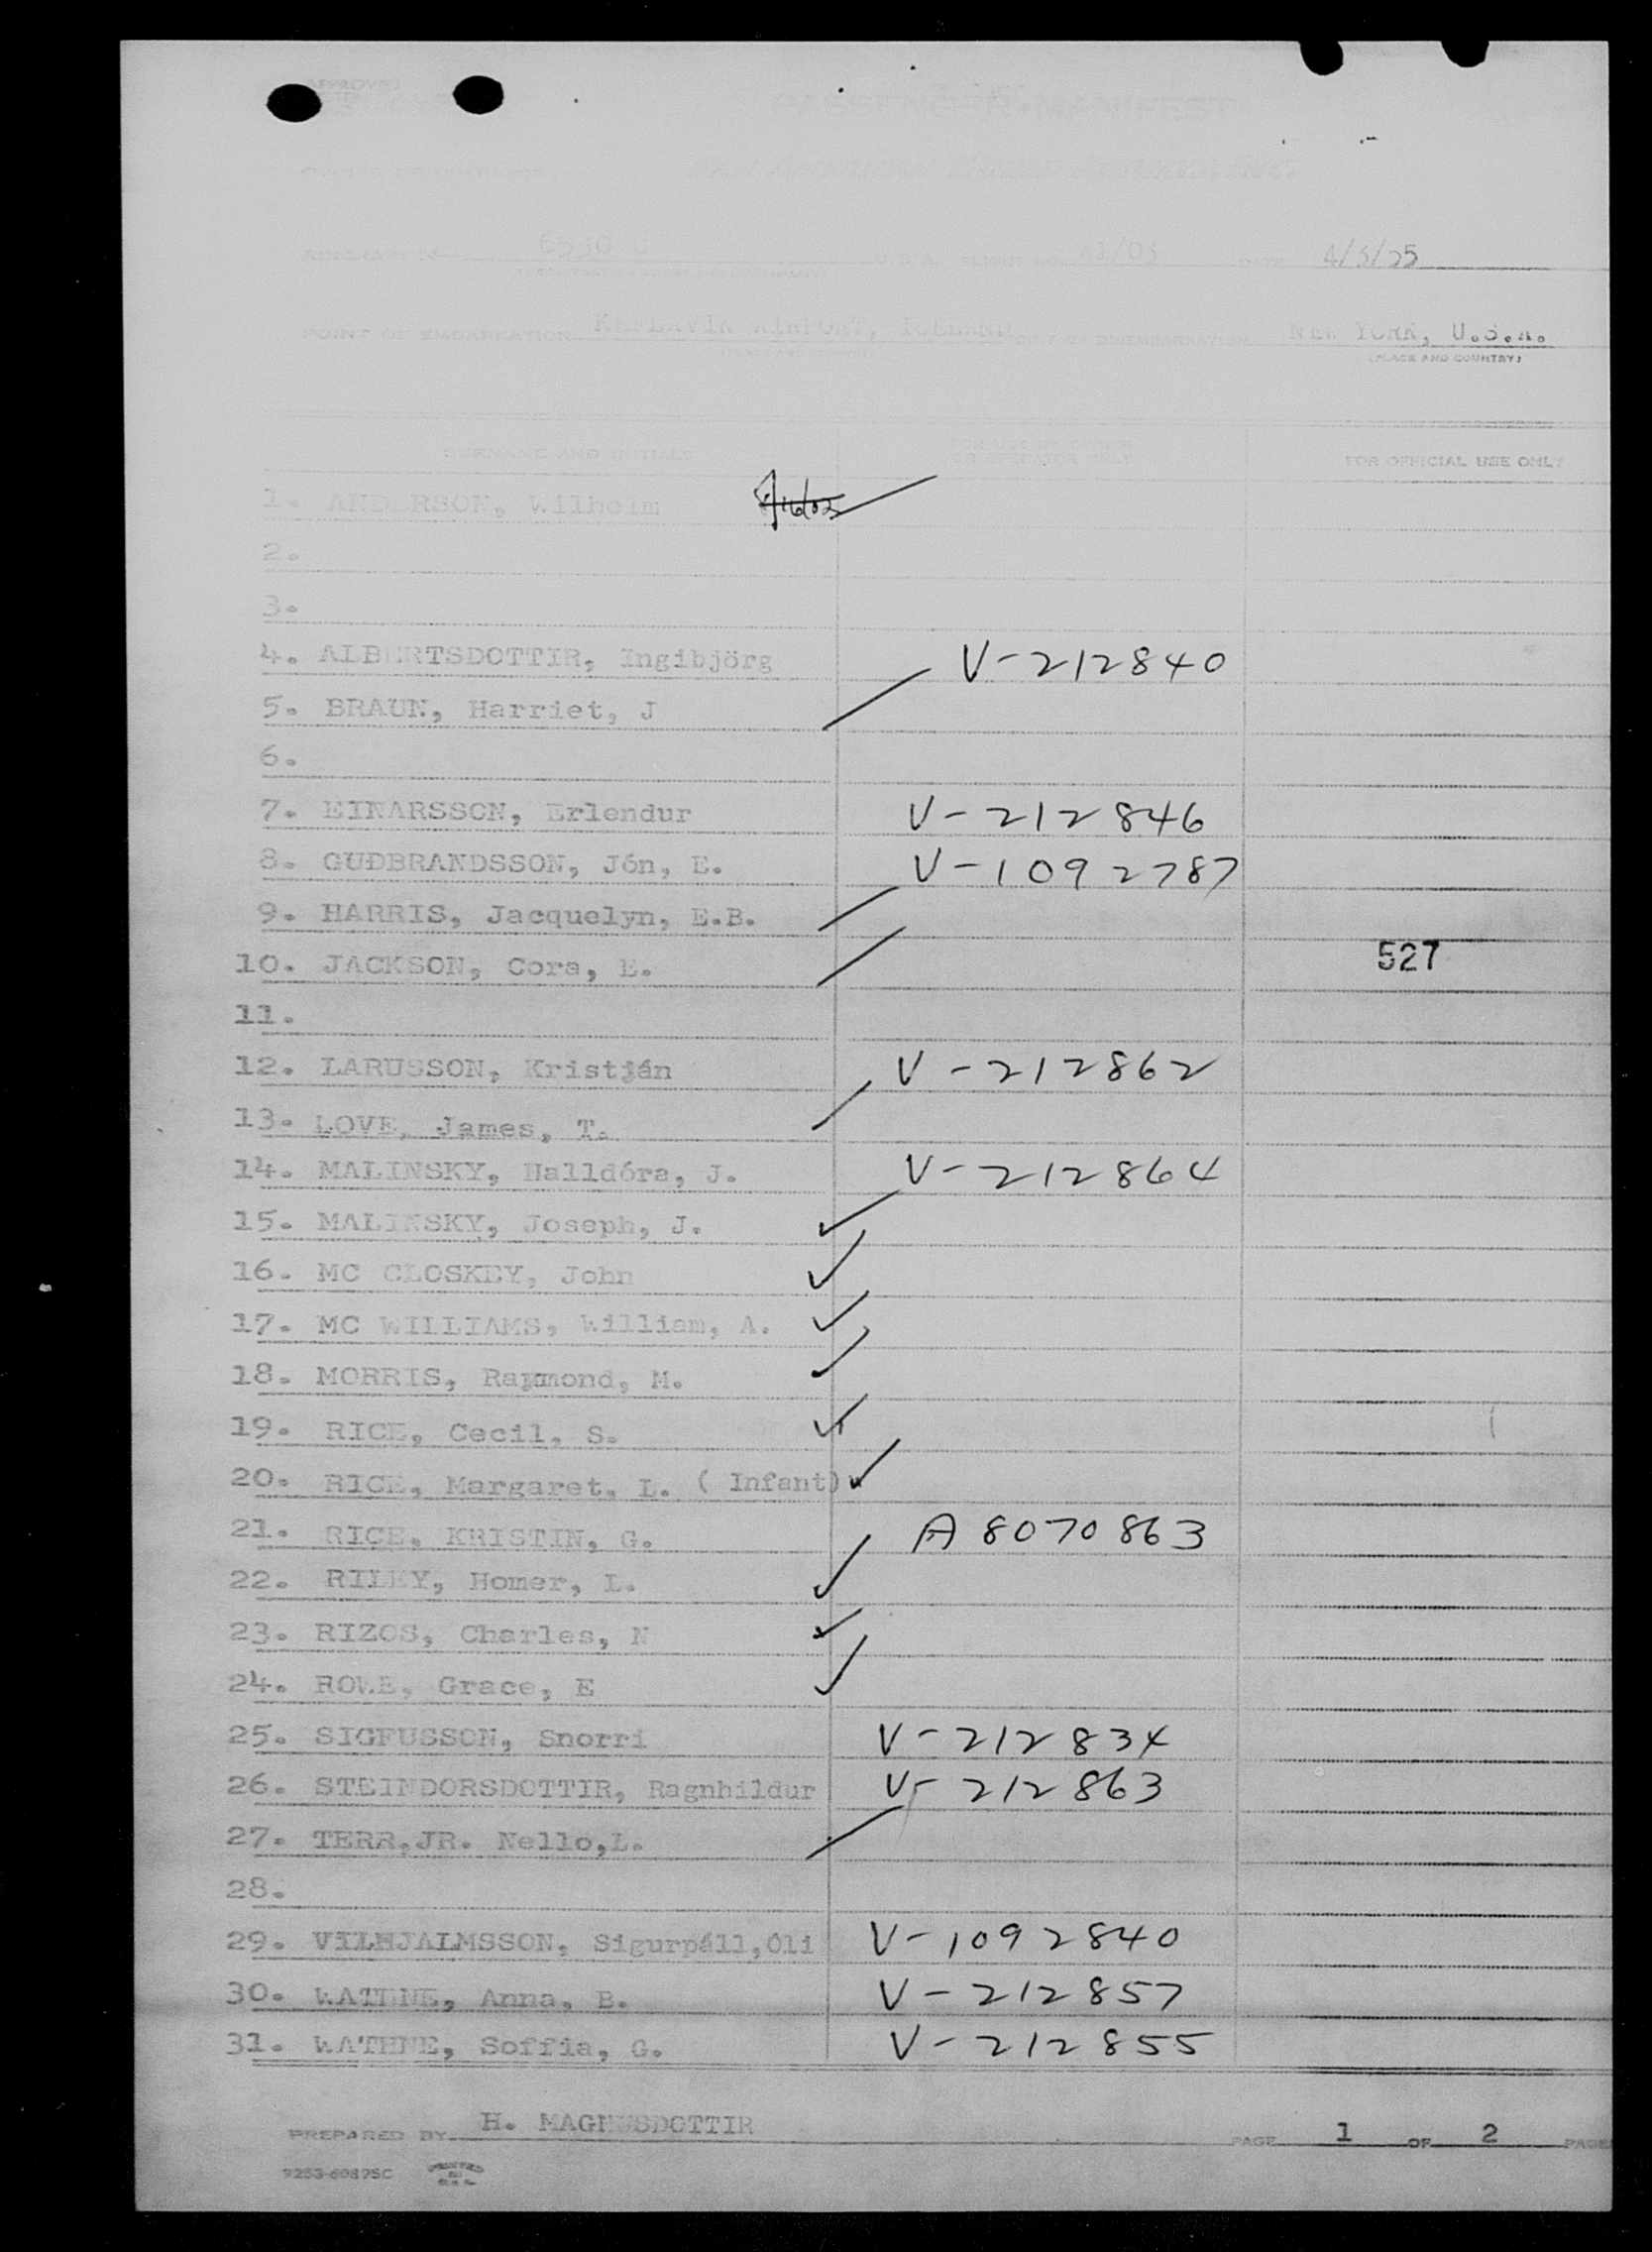 APPROVED
PASSENGER MANIFEST
AIRCRAFT
FLIGHT NO. DATE 4/5/
POINT OF EMBARKATION KEFLAVIK AIRPORT, ICELAND POINT OF DISEMBARKATION NEW YORK, U.S.A.
(PLACE AND COUNTRY)
SURNAME AND INITIALS FOR USE OF OWNER OR OPERATOR ONLY FOR OFFICIAL USE ONLY
1. ANDERSON, Wilhelm
2.
3.
4. ALBERTSDOTTIR, Ingibjörg V-212840
5. BRAUN, Harriet, J
6.
7. EINARSSON, Erlendur V-212846
8. GUÐBRANDSSON, Jón, E. V-1092787
9. HARRIS, Jacquelyn, E.B.
10. JACKSON, Cora, E. 527
11.
12. LARUSSON, Kristján V-212862
13. LOVE, James, T.
14. MALINSKY, Halldóra, J. V-212864
15. MALINSKY, Joseph, J.
16. MC CLOSKEY, John
17. MC WILLIAMS, William, A.
18. MORRIS, Raymond, M.
19. RICE, Cecil, S.
20. RICE, Margaret, L. ( Infant)
21. RICE, KRISTIN, G. A 8070863
22. RILEY, Homer, L.
23. RIZOS, Charles, N
24. ROWE, Grace, E
25. SIGFUSSON, Snorri V-212834
26. STEINDORSDOTTIR, Ragnhildur V-212863
27. TERR,JR. Nello,L.
28.
29. VILHJALMSSON, Sigurpáll,Óli V-1092840
30. WATHNE, Anna, B. V-212857
31. WATHNE, Soffia, G. V-212855
PREPARED BY H. MAGNUSDOTTIR PAGE 1 OF 2 PAGES